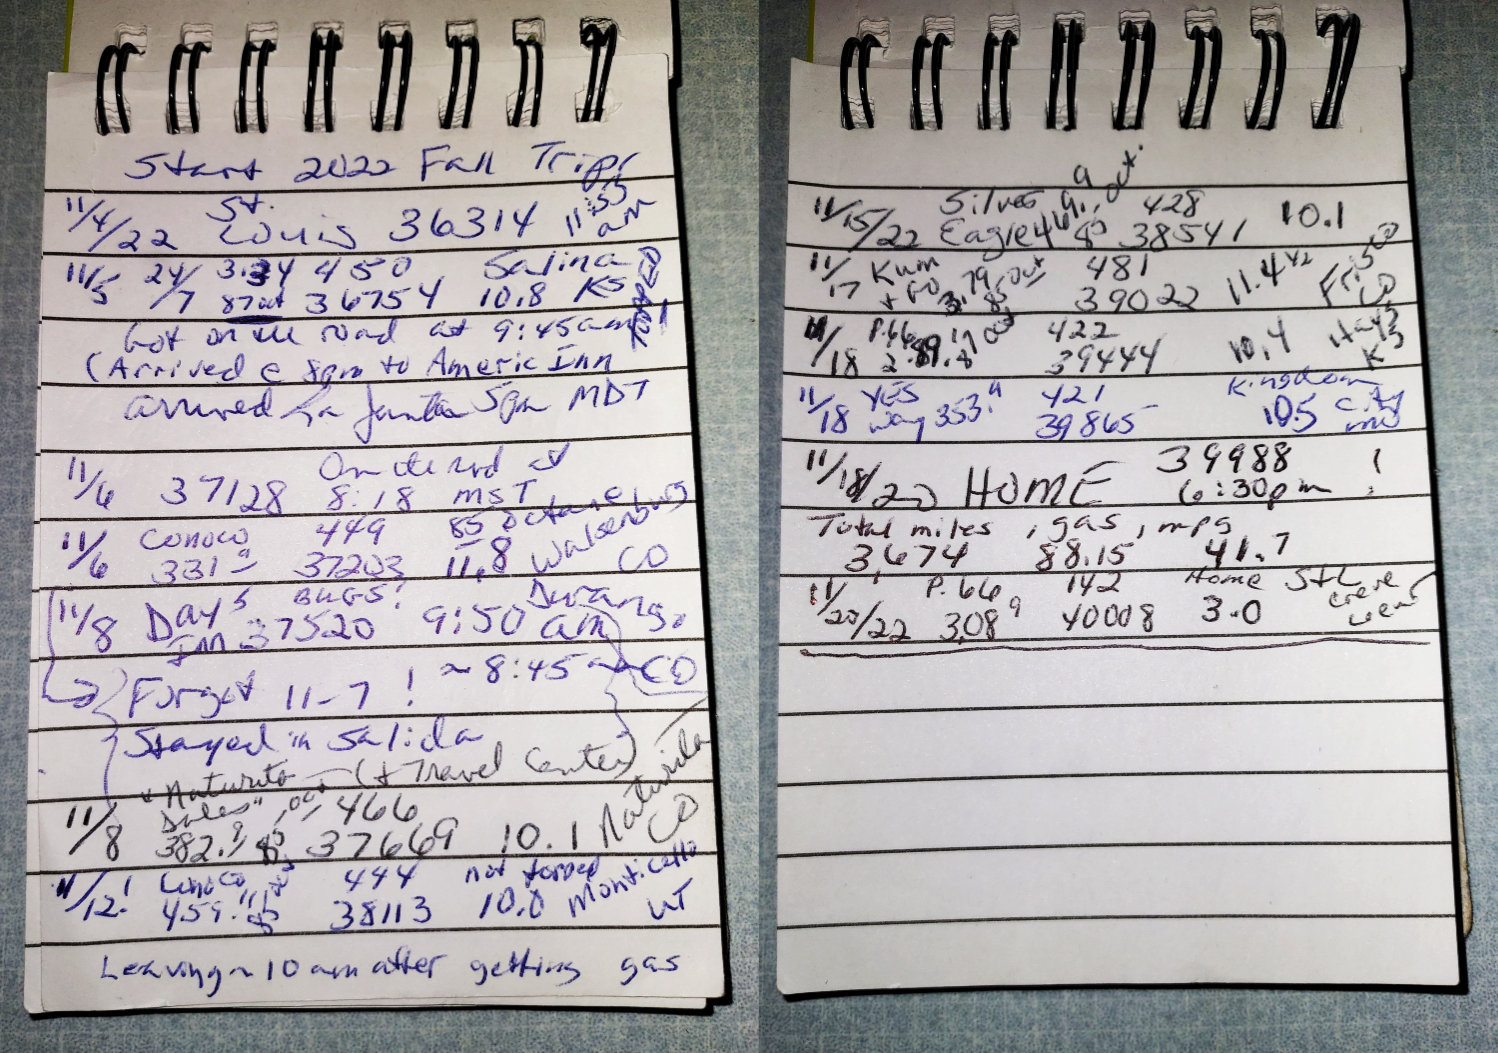 Start 2022 Fall Trip
11/4/22 St. Louis 36314 11:53 am
11/5 24/7 3.34 450 Salina KS
87 oct 36754 10.8
Got on the road at 9:45 am
(Arrived @ 8pm to AmericInn
arrived La Junta 5pm MDT
11/6 37128 On the road at
8:18 MST
11/6 Conoco 449 85 octane Walsenburg
331.9 37203 11.8 CO
11/8 Days Inn BUGS! Durango
37520 9:50 am
Forgot 11-7 ! ~8:45 CO
Stayed in Salida
"Naturita (+ Travel Center)
Sales" oct 466 Naturita
11/8 382.9 85 37669 10.1 CO
11/12 Conoco 444 not topped Monticello
459.9 85 38113 10.0 UT
Leaving ~ 10 am after getting gas
11/15/22 Silver 428 10.1
Eagle 469.9 85 oct. 38541
11/17 Kum 481 11.4 Frisco
+ GO 3.79 85 oct 39022 CO
11/18 P.66 422 10.4 Hays
2.89.9 87 oct 39444 KS
11/18 YES 421 Kingdom
way 353.9 39865 10.5 City MO
11/18/22 HOME 39988 !
6:30pm
Total miles, gas, mpg
3,674 88.15 41.7
11/20/22 P.66 142 Home StL
3.08 9 40008 3.0 Creve Coeur